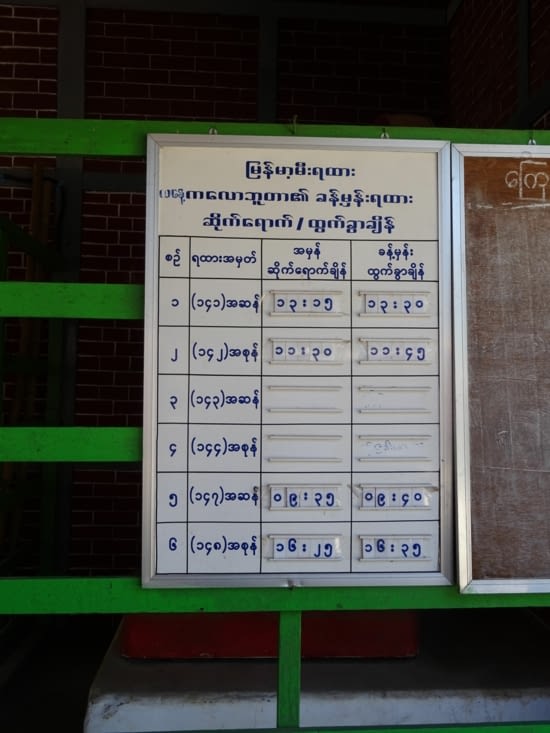 မြန်မာ့မီးရထား
ယနေ့ကလောဘူတာ၏ ခန့်မှန်းရထား
ဆိုက်ရောက် / ထွက်ခွာချိန်
စဉ် ရထားအမှတ် အမှန် ဆိုက်ရောက်ချိန် ခန့်မှန်း ထွက်ခွာချိန်
၁ (၁၄၁)အဆန် ၁၃:၁၅ ၁၃:၃၀
၂ (၁၄၂)အစုန် ၁၁:၃၀ ၁၁:၄၅
၃ (၁၄၃)အဆန်
၄ (၁၄၄)အစုန်
၅ (၁၄၇)အဆန် ၀၉:၃၅ ၀၉:၄၀
၆ (၁၄၈)အစုန် ၁၆:၂၅ ၁၆:၃၅